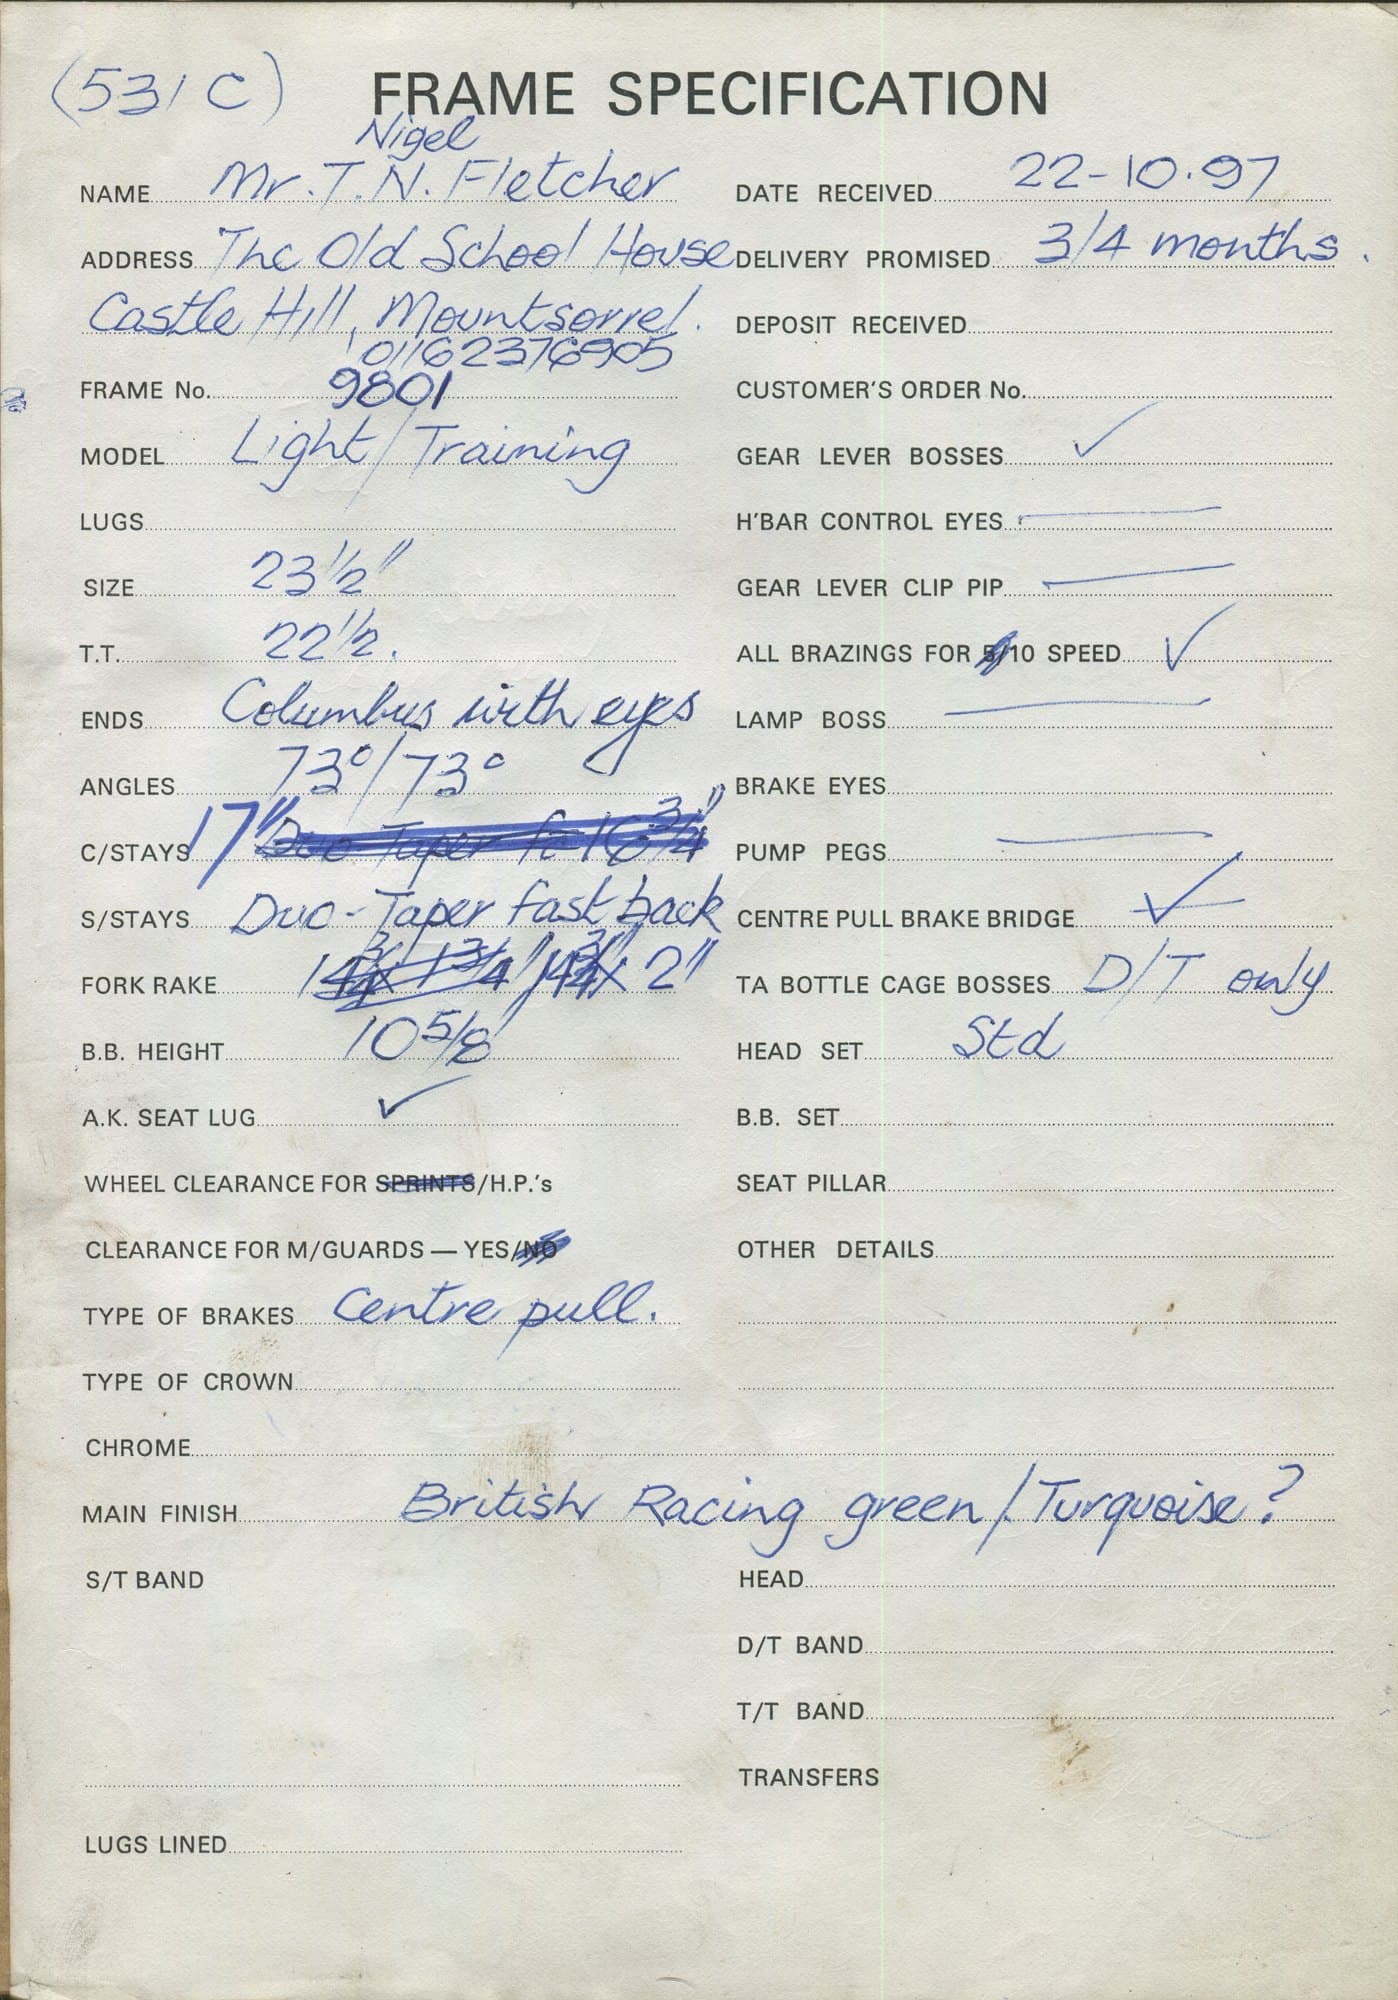 (531 C) FRAME SPECIFICATION
Nigel
NAME Mr. T. N. Fletcher
ADDRESS The Old School House
Castle Hill, Mountsorrel.
01162376905
FRAME No. 9801
MODEL Light/Training
LUGS
SIZE 23 1/2"
T.T. 22 1/2.
ENDS Columbus with eyes
ANGLES 73°/73°
C/STAYS 17" Duo Taper 16 3/4"
S/STAYS Duo-Taper fast back
FORK RAKE 2"
B.B. HEIGHT 10 5/8
A.K. SEAT LUG ✓
WHEEL CLEARANCE FOR SPRINTS/H.P.'s
CLEARANCE FOR M/GUARDS — YES/NO
TYPE OF BRAKES Centre pull.
TYPE OF CROWN
DATE RECEIVED 22-10.97
DELIVERY PROMISED 3/4 months.
DEPOSIT RECEIVED
CUSTOMER'S ORDER No.
GEAR LEVER BOSSES ✓
H'BAR CONTROL EYES —
GEAR LEVER CLIP PIP —
ALL BRAZINGS FOR 5/10 SPEED ✓
LAMP BOSS —
BRAKE EYES
PUMP PEGS —
CENTRE PULL BRAKE BRIDGE ✓
TA BOTTLE CAGE BOSSES D/T only
HEAD SET Std
B.B. SET
SEAT PILLAR
OTHER DETAILS
CHROME
MAIN FINISH British Racing green/Turquoise?
S/T BAND
HEAD
D/T BAND
T/T BAND
TRANSFERS
LUGS LINED